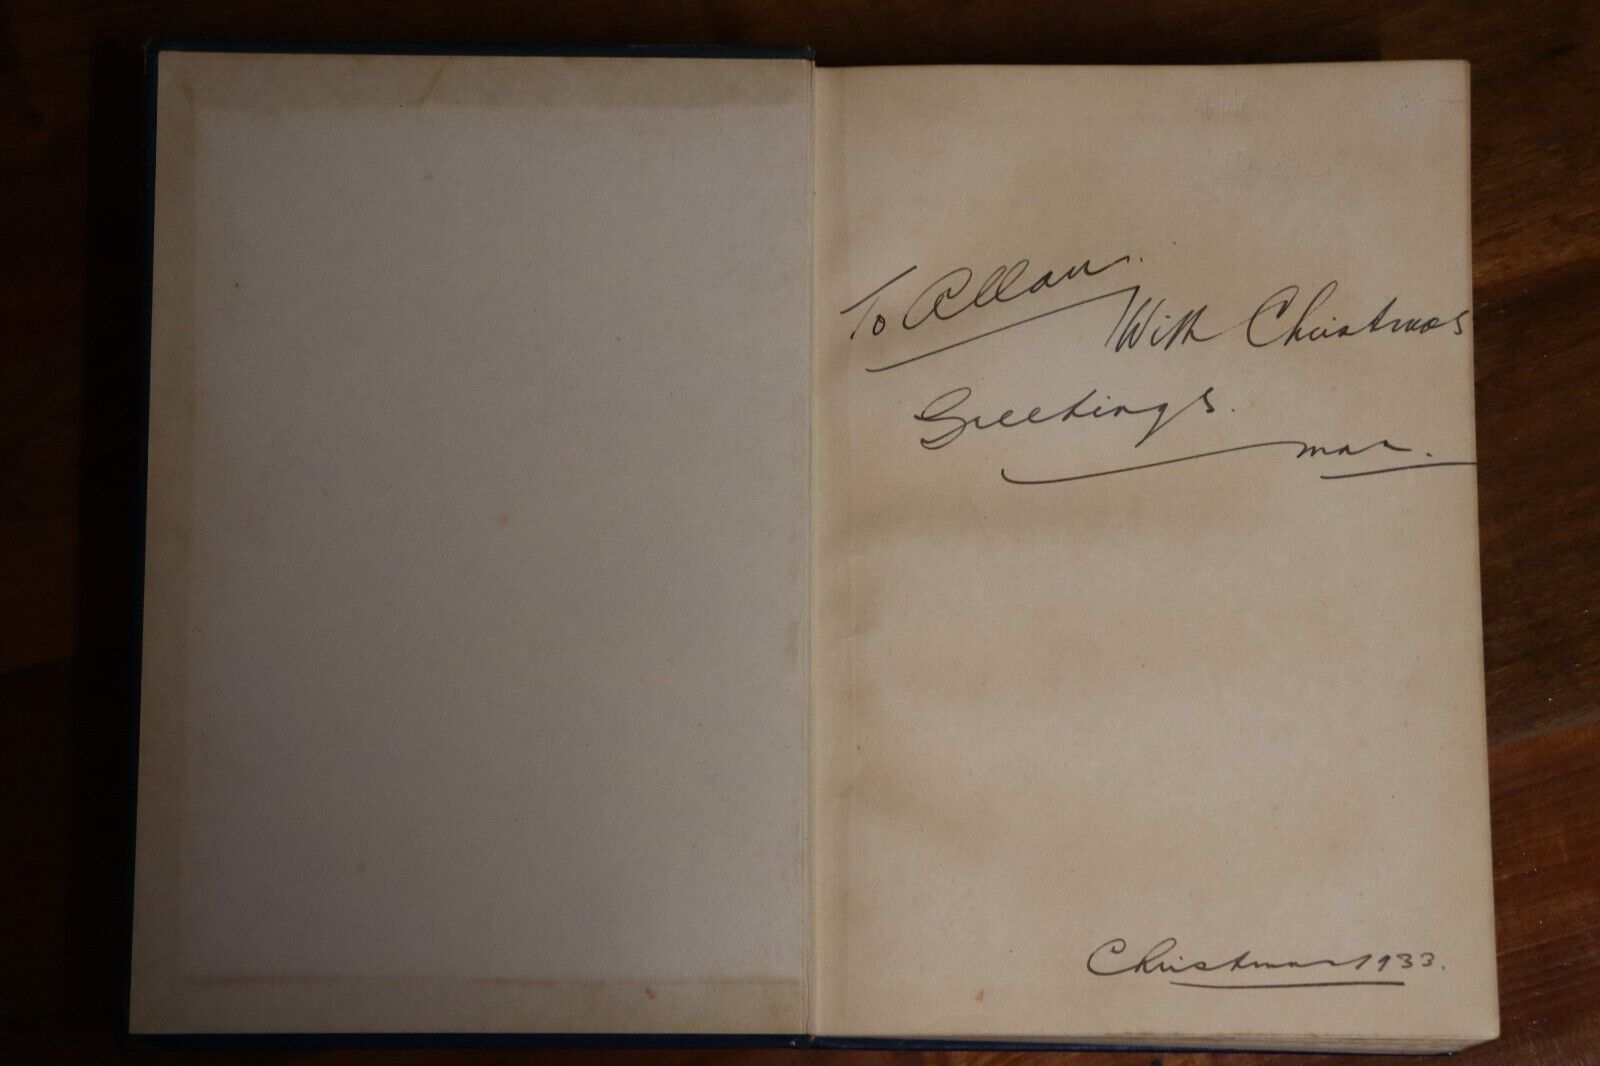 To Allan.
With Christmas
Greetings.
Christmas 1933.